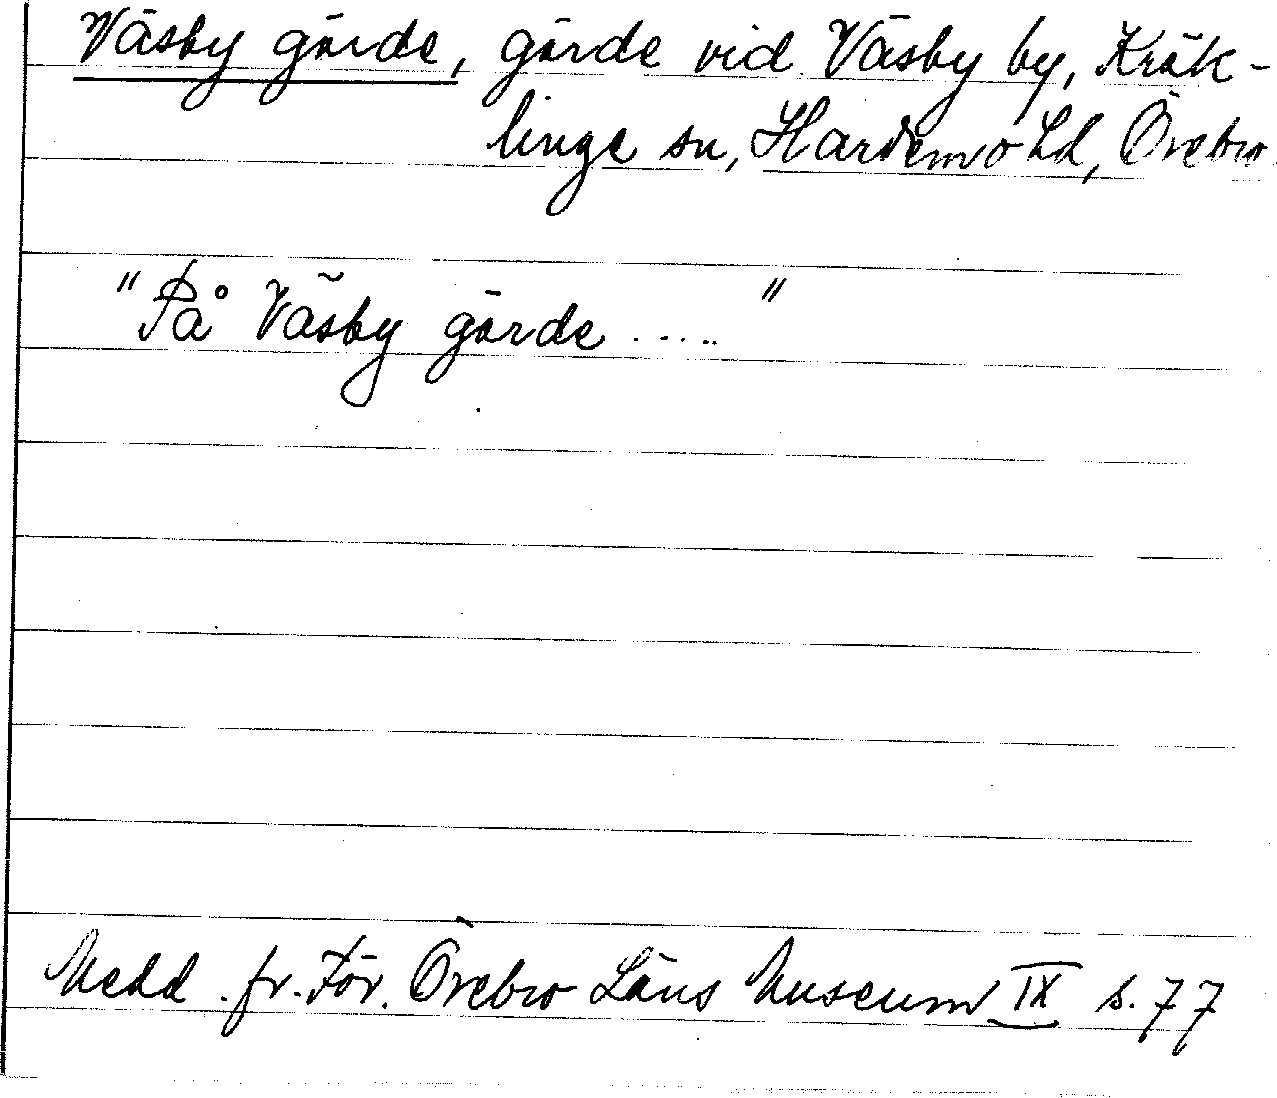 Väsby gärde, gärde vid Väsby by, Kräk-
linge sn, Hardemo hd, Örebro
"På Väsby gärde ....."
Medd. fr. För. Örebro Läns Museum IX s. 77